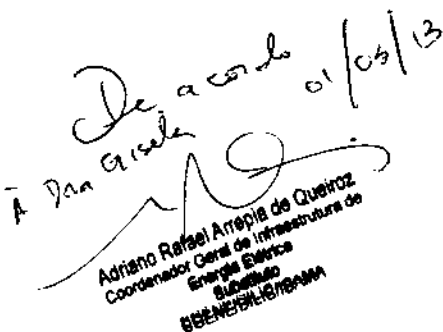 De acordo
01/03/13
À Dra Gisela
Adriano Rafael Arrepia de Queiroz
Coordenador Geral de Infraestrutura de
Energia Elétrica
Substituto